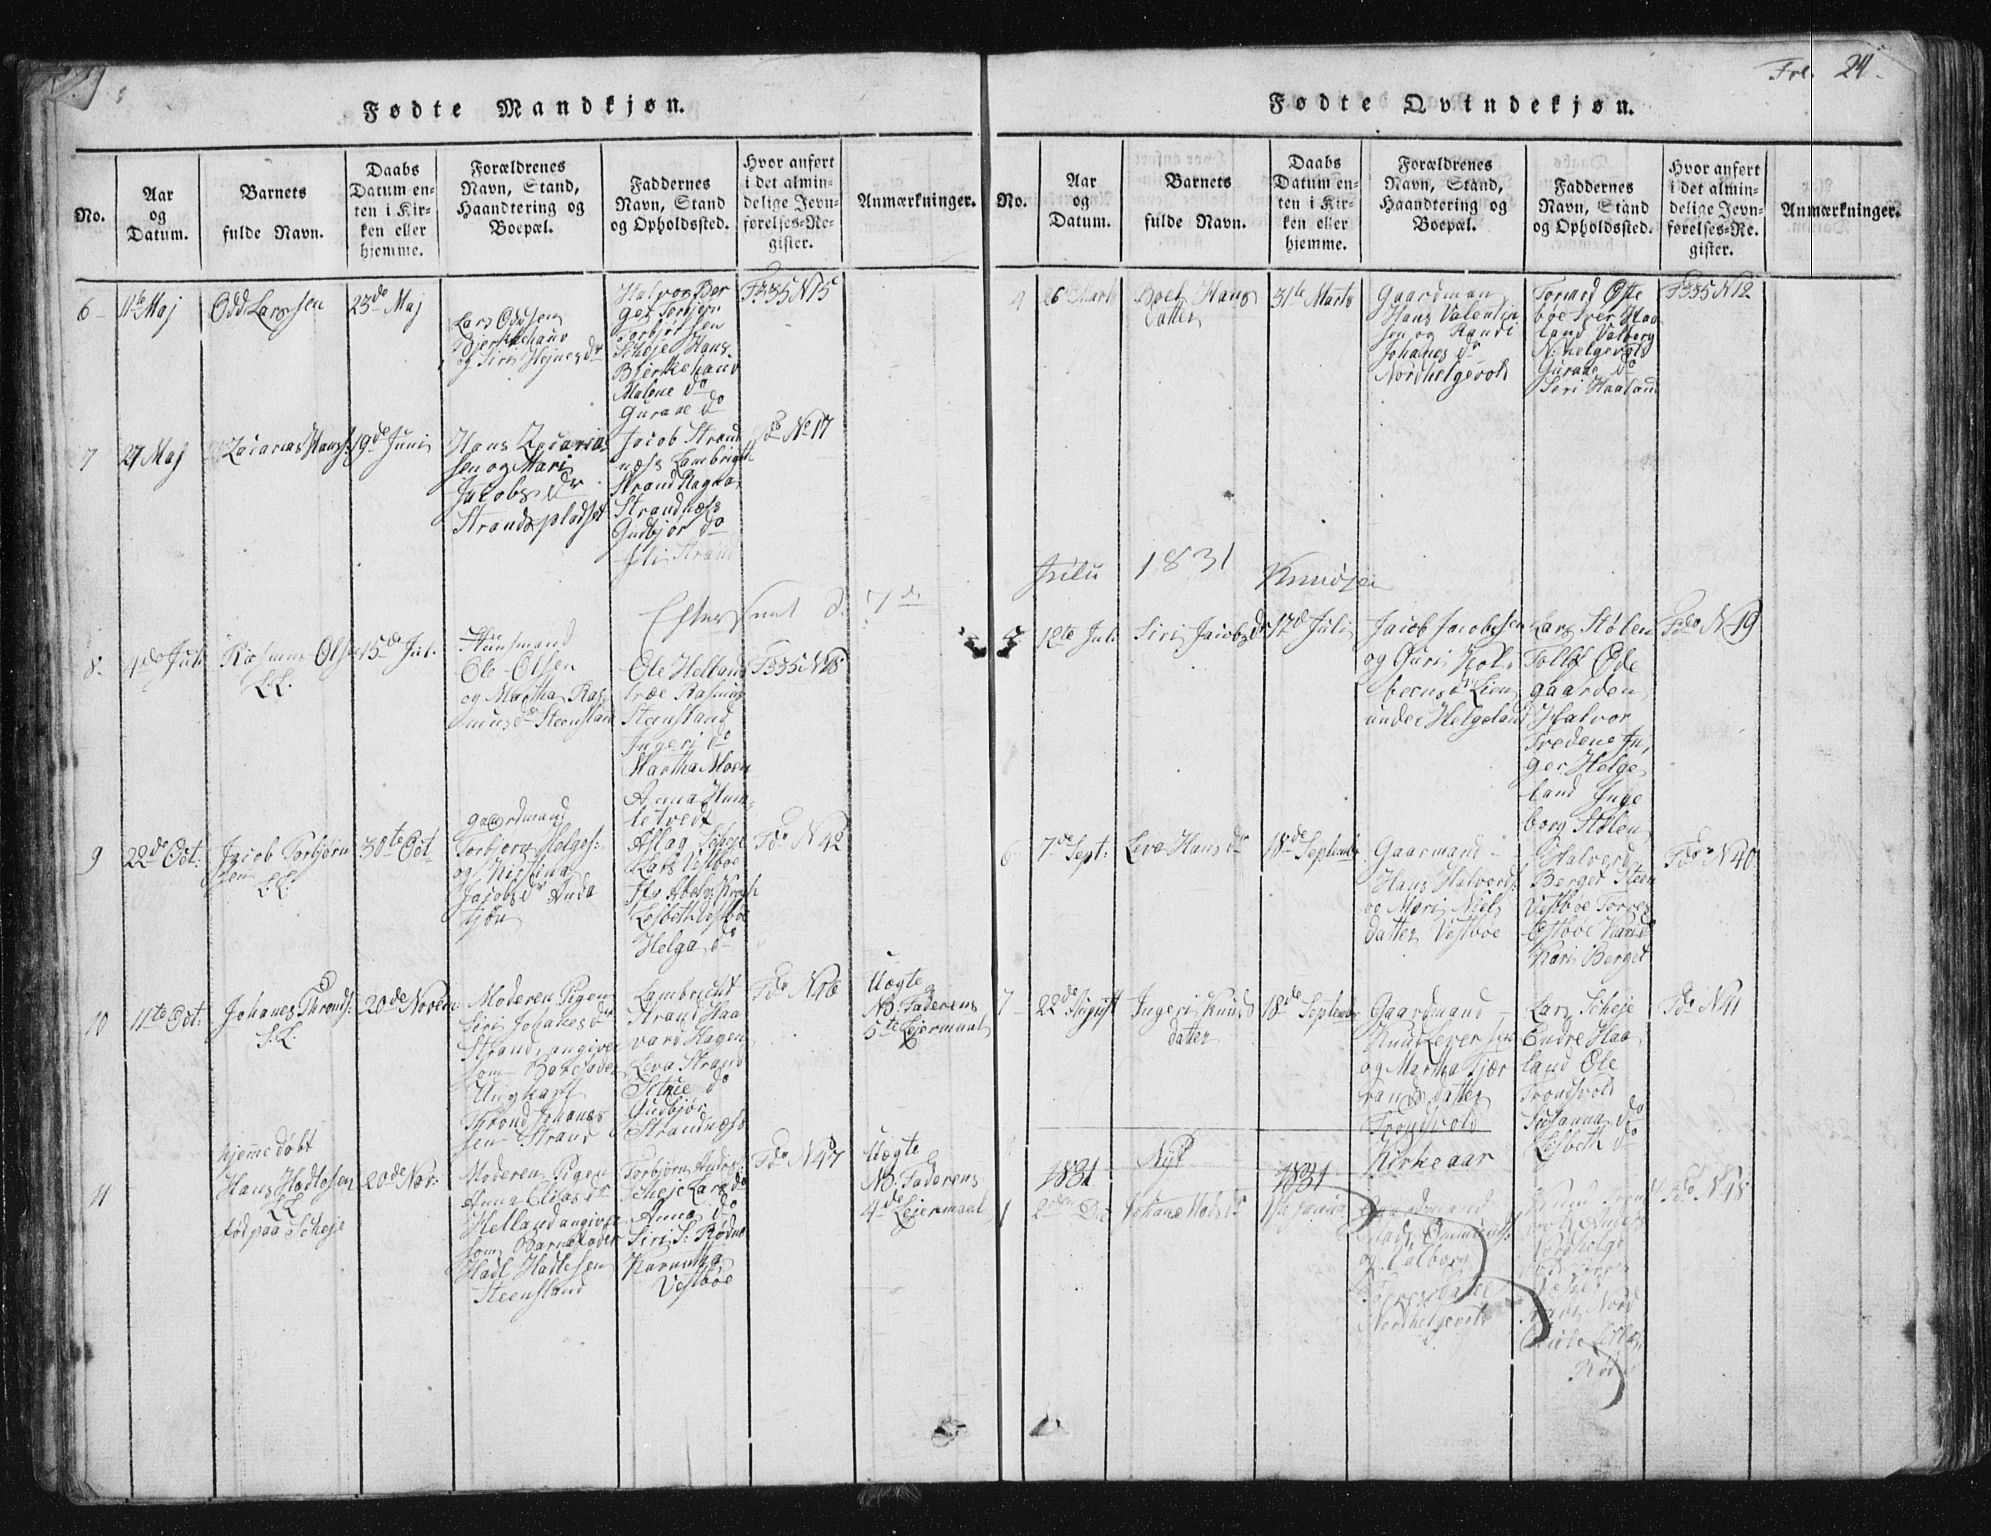 Frl. 24.
Fødte Mandkjøn.
No.
Aar og Datum.
Barnets fulde Navn.
Daabs Datum enten i Kirken eller hjemme.
Forældrenes Navn, Stand, Haandtering og Boepæl.
Faddernes Navn, Stand og Opholdssted.
Hvor anført i det almindelige Jevnførelses-Register.
Anmærkninger.
6
11te Maj
Odd Larssen
23de Maj
Lars Oddsen
Bjerkehaug
og Siri
Halvor Ber
get Torbjørn
Torbjørnsen
Scheje Hans
Bjerkehaug
Malene do
Guraae do
F. 335 N 15
7
27 Maj
Zacarias Hans:
19de Juni
Hans Zacarias
sen og Mari
Jacobs dr
Strandspladset
Jacob Strand
næss Lambrigt
Strand Ragna
Strandnæss
Gudbjør do
Juli Strand
Fdo No 17
8.
4de Jul.
Rasmus Olsen
L.L.
15de Jul.
Huusmand
Ole Olsen
og Martha Ras
mus dr Steensland
Ole Helland
træe Rasmus
Steensland
Ingeri do
Martha Moen
Anna Hum
letvedt
F335 N 18
9
22de Oct:
Jacob Torbjørn
sen
L.L.
30te Oct
gaardmand
Torbjørn Helges:
og Kirstina
Jacobs dr Anda
tjøn
Aslag Scheje
Lars Vestbøe
Lisbeth Vestbøe
Helga do
Fdo N 42
10
11te Oct:
Johanes Thronds:
S.L.
20de Novem
Moderen Pigen
Siri Johanes dr
Strand, angiven
som Barnefader
Ungkarl
Thrond Johanes
sen Strand
Lambricht
Strand Haa
vard Hagen
Leva Strand
Scheje do
Gudbjør
Strandnæss
Fdo N 46
Uægte
NB. Faderens
5te Leiermaal
11
hjemme døbt
Hans Hadlesen
L.L.
fød paa Scheje
20de Nov:
Moderen Pigen
Anna Elias dr
Helland angiven
som Barnefader
Hadl Hadlesen
Steensland
Torbjørn Andrs:
Scheje Lars do
Anna do
Siri S. Rødne
Vestbøe
Fdo N 47
Uægte
NB. Faderens
4de Leiermaal
Fødte Qvindekjøn.
No.
Aar og Datum.
Barnets fulde Navn.
Daabs Datum enten i Kirken eller hjemme.
Forældrenes Navn, Stand, Haandtering og Boepæl.
Faddernes Navn, Stand og Opholdssted.
Hvor anført i det almindelige Jevnførelses-Register.
Anmærkninger.
4
16 Marts
Boel Hans
datter
31te Marts
Gaardman
Hans Valentin
sen og Randi
Johanes dr
Nordhelgevold
Tormod Øste
bøe Iver Haa
land Valborg
N. helgevold
Guraae do
Seri Haaland
F335 N 12
1831
Knudsen
5.
12te Juli
Siri Jacobs dr
17d Juli
Jacob Jacobsen
og Guri Kol
beens dr Lien
under Helgeland
Lars Stølen
Tollef Øde
gaarden
Halvor
Tredene In
ger Helge
land Inge
borg Stølen
Fdo N 19
6
7de Sept:
Leva Hans dr
18de September
Gaarmand
Hans Halvords:
og Mari Niels
datter Vestbøe
Halverd
Berget Steen
Vestbøe Torres
Østbøe
Kari Berget
Fdo N 40
7
22de August
Ingeri Knuds
datter
18de September
Gaardmand
Knud Leversen
og Martha Tjær
rands datter
Trondsvold
Lars Scheje
Endre Haa
land Ole
Trondsvold
Susanna do
Lisbeth do
Fdo N 41
1831
Nyt
1831
Kirkeaar
1
2den Dec
Johane Mads dr
1ste Januar
Gaardmand
Mads Omundss:
og Valborg
Torres datter
Nordhelgevold
Fdo N 48